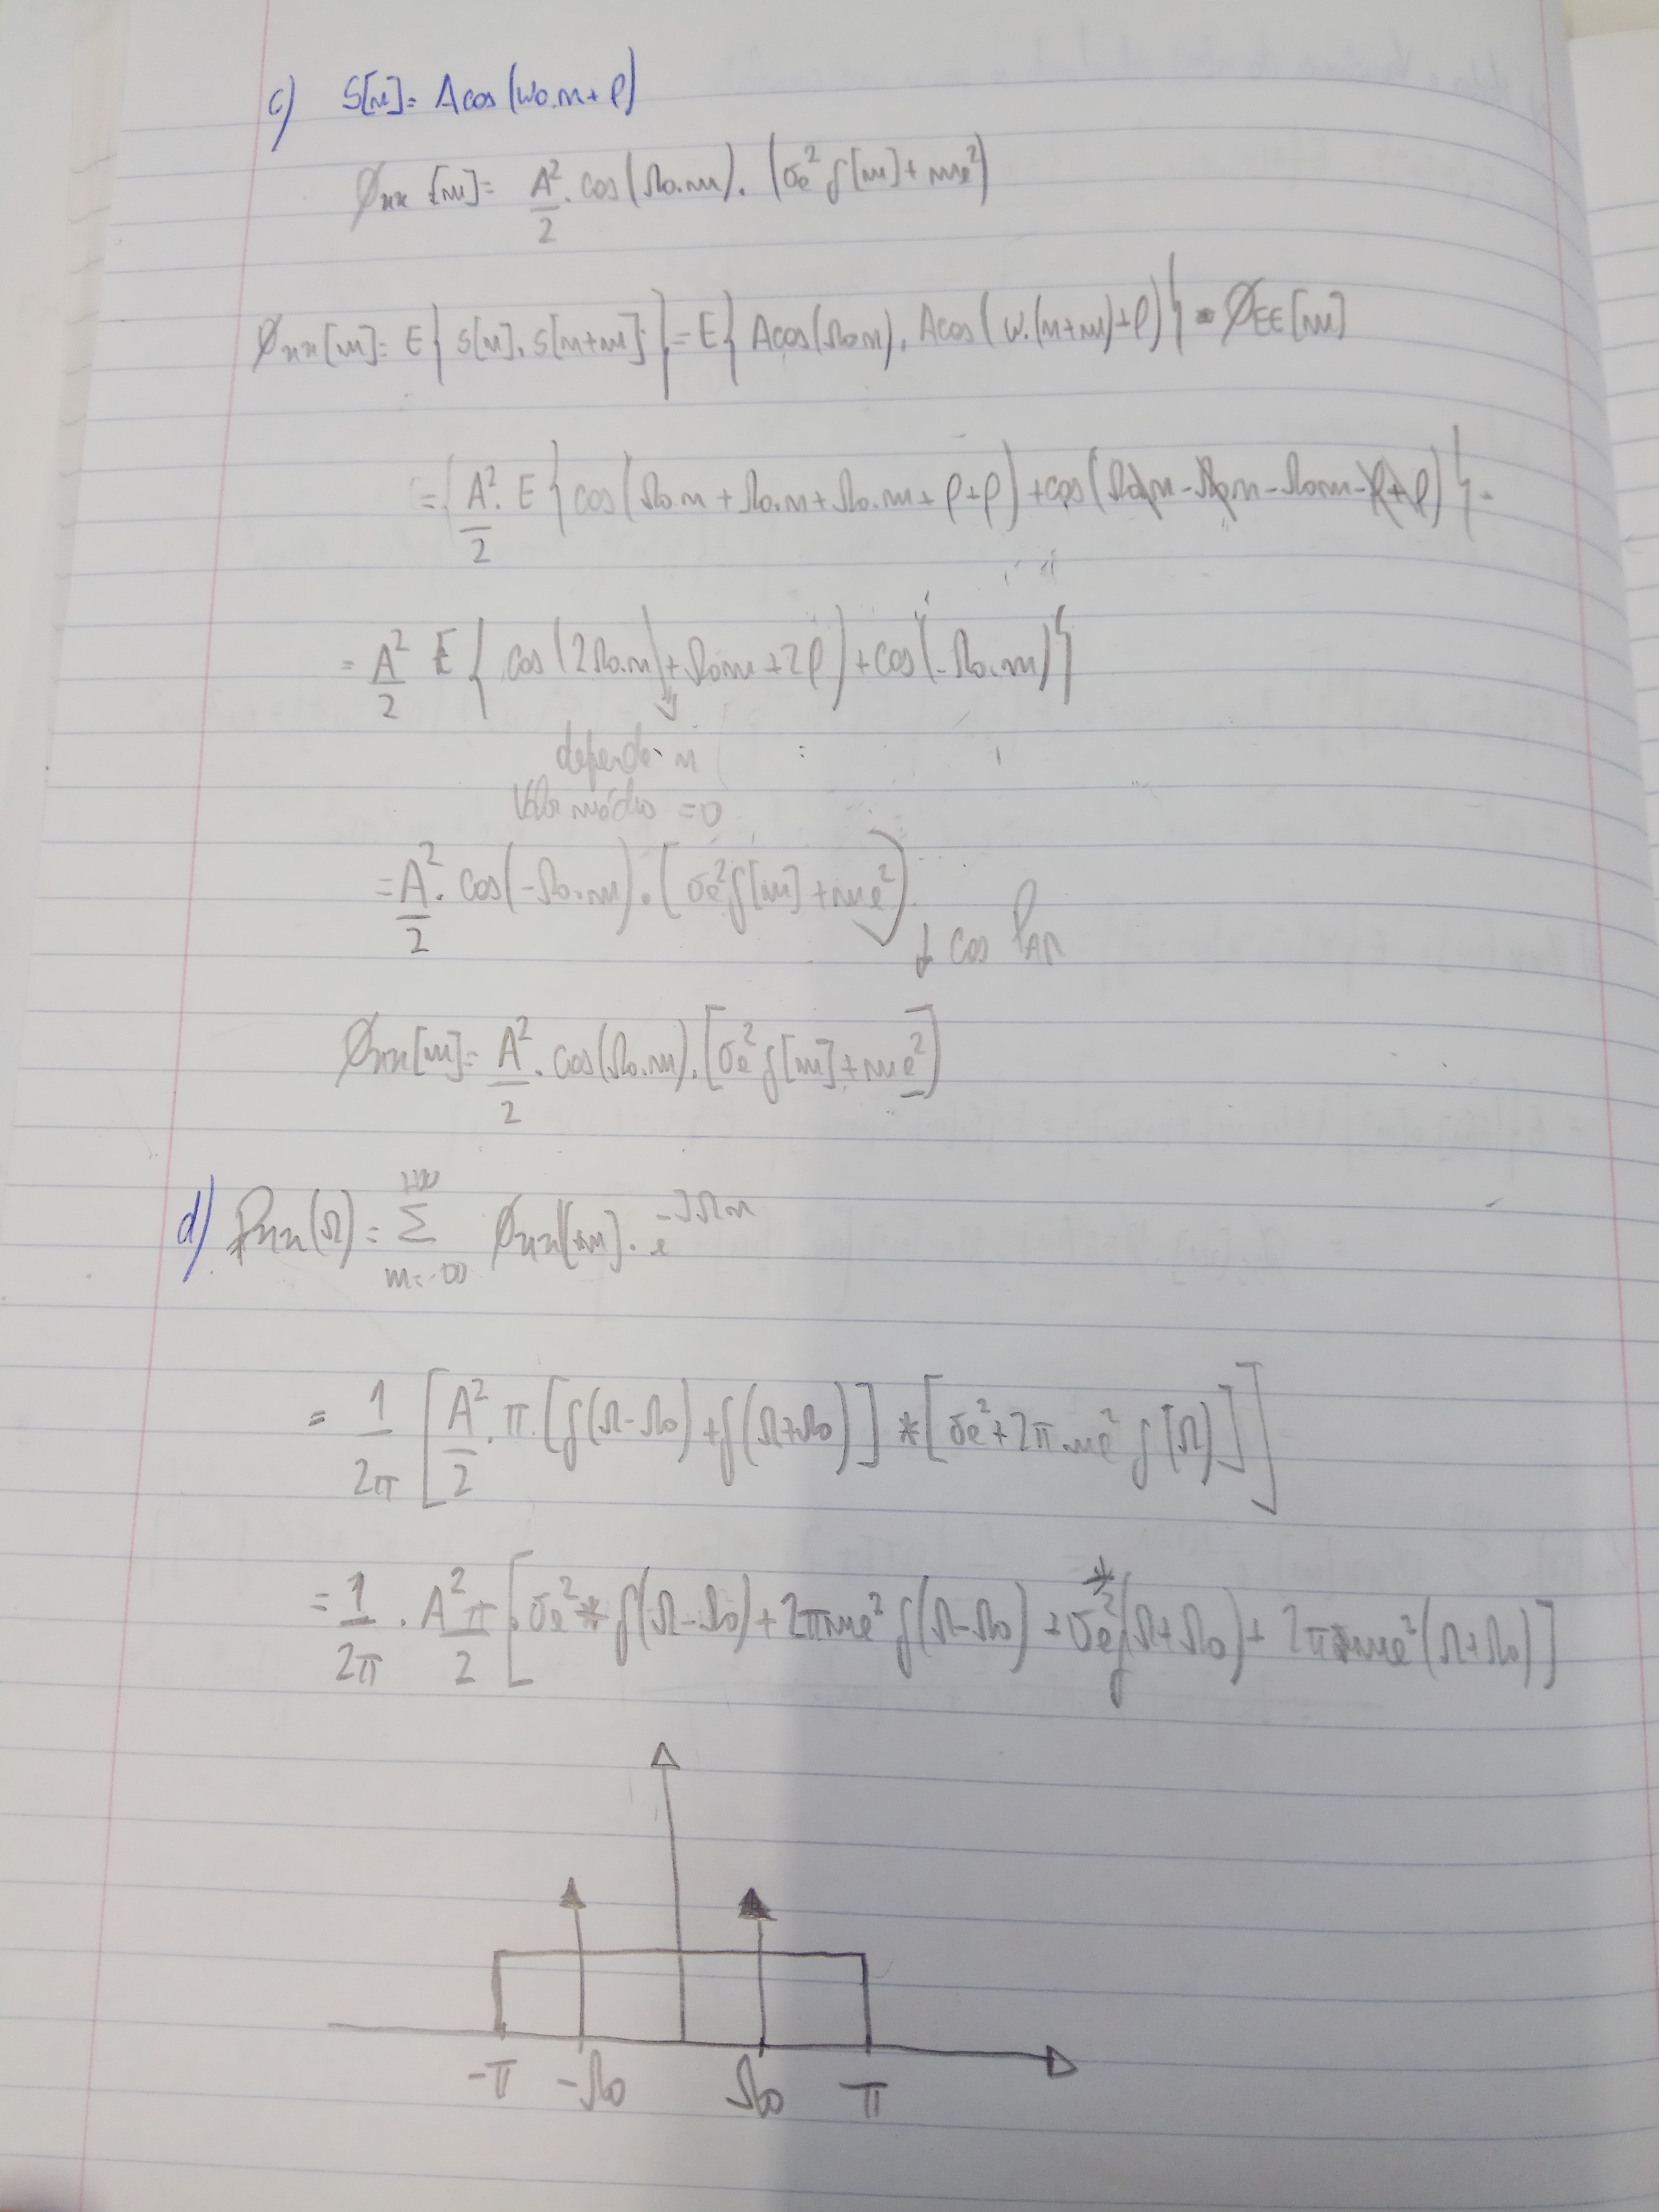 c) S[n]= A cos(ω0.n+ρ)
ϕxx [m]= A²/2 . cos(Ω0.m). (σe² δ[m]+me²)
ϕxx[m]= E{ S[n]. S[n+m] }= E{ A cos(Ω0n). A cos(ω.(n+m)+ρ)} . ϕEE[m]
= A²/2 . E{cos(Ω0.n + Ω0.n+Ω0.m+ρ+ρ)+cos(Ω0n-Ω0n-Ω0m-ρ+ρ)}.
= A²/2 E{ cos(2Ω0.n+Ω0m+2ρ)+cos(-Ω0.m)}
depende n
Valor médio =0
= A²/2 . cos(-Ω0.m).(σe² δ[m]+me²)
↓ cos PAR
ϕxx[m]= A²/2 . cos(Ω0.m).[σe² δ[m]+me²]
d) Pxx(Ω)= Σ m=-∞ +∞ ϕxx[m]. e^-JΩm
= 1/2π [A²/2 . π.[δ(Ω-Ω0)+δ(Ω+Ω0)] * [σe²+2π.me² δ[Ω)]]
= 1/2π . A²π/2 [σe² * δ(Ω-Ω0)+2πme² δ(Ω-Ω0)+σe² * δ(Ω+Ω0)+ 2πme²(Ω+Ω0)]
-π -Ω0 Ω0 π